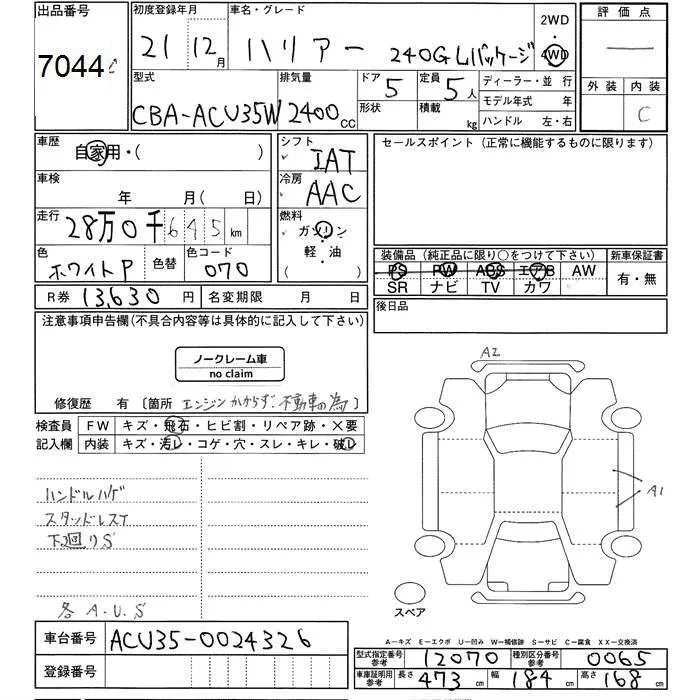 出品番号
7044
初度登録年月
21 12月
車名・グレード
ハリアー 240G Lパッケージ
2WD
4WD
評価点
—
外装 内装
C
型式
CBA-ACU35W
排気量
2400cc
ドア
5
形状
定員
5人
積載
kg
ディーラー・並行
モデル年式 年
ハンドル 左・右
車歴
自家用・( )
車検
年 月( 日)
走行
28万0千645km
色
ホワイトP
色替
色コード
070
シフト
IAT
冷房
AAC
燃料
ガソリン
軽・油
( )
セールスポイント(正常に機能するものに限ります)
装備品(純正品に限り○をつけて下さい)
新車保証書
PS PW ACS エアB AW
SR ナビ TV カワ
有・無
後日品
R券 13,630円
名変期限 月 日
注意事項申告欄(不具合内容等は具体的に記入して下さい)
ノークレーム車
no claim
修復歴 有 〔箇所 エンジンかからず.不動車の為〕
検査員
記入欄
FW キズ・飛石・ヒビ割・リペア跡・×要
内装 キズ・汚レ・コゲ・穴・スレ・キレ・破レ
ハンドルハゲ
スタッドレスT
下廻りS
各 A.U.S
A2
A1
スペア
車台番号 ACU35-0024326
登録番号
A−キズ E−エクボ U−凹み W−補修跡 S−サビ C−腐食 XX−交換済
型式指定番号
参考
12070
種別区分番号
参考
0065
車庫証明用
参考
長さ 473cm 幅 184cm 高さ 168cm